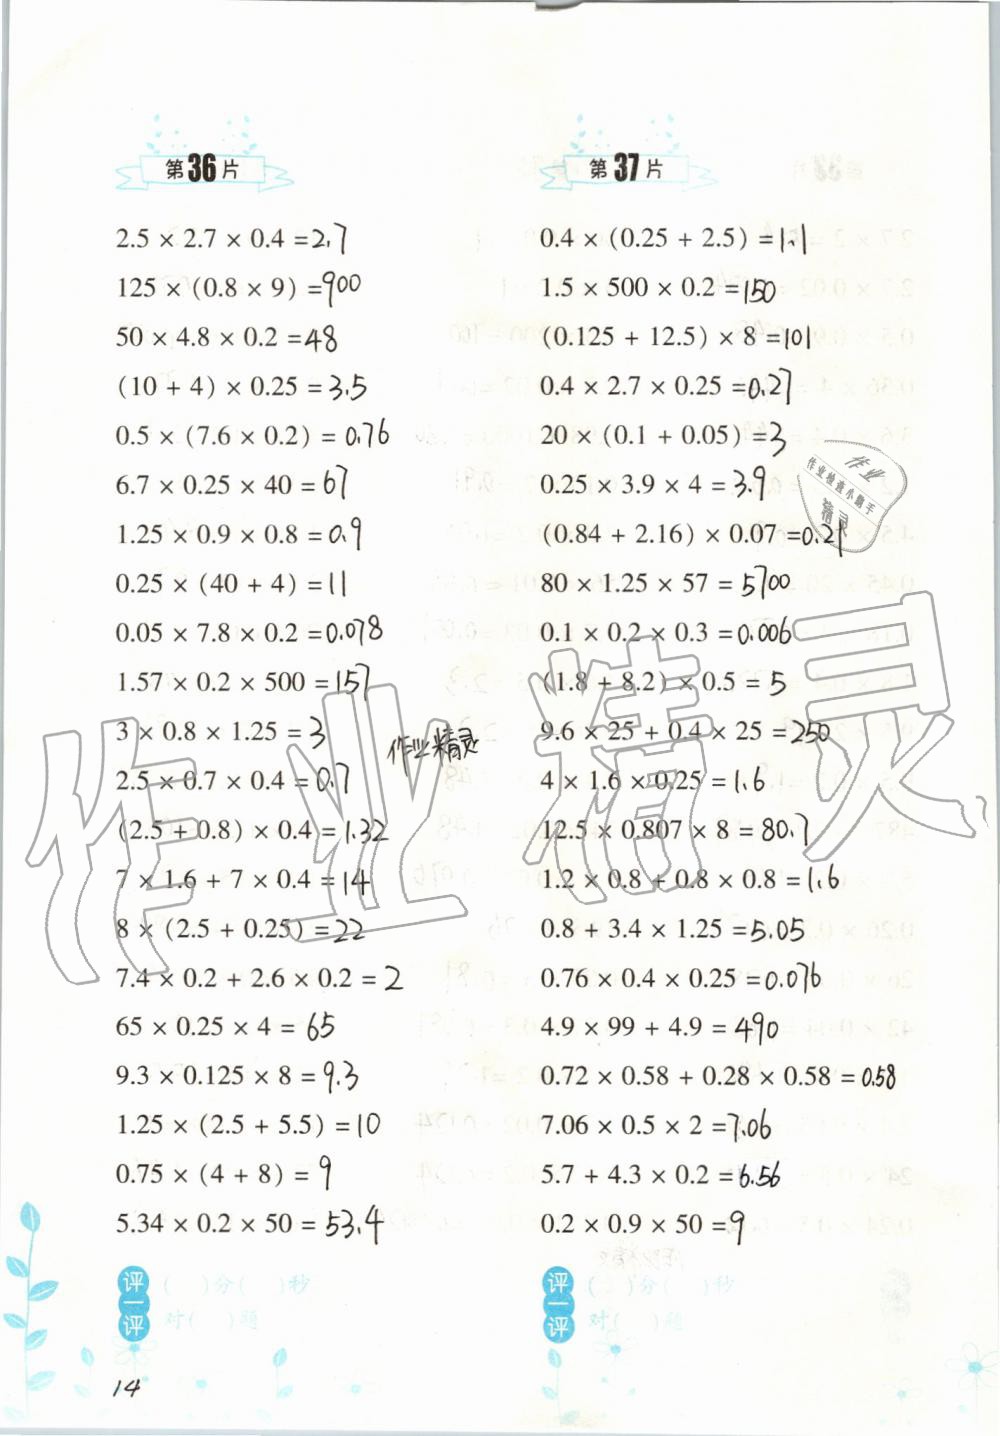 第36片
2.5 × 2.7 × 0.4 = 2.7
125 × (0.8 × 9) = 900
50 × 4.8 × 0.2 = 48
(10 + 4) × 0.25 = 3.5
0.5 × (7.6 × 0.2) = 0.76
6.7 × 0.25 × 40 = 67
1.25 × 0.9 × 0.8 = 0.9
0.25 × (40 + 4) = 11
0.05 × 7.8 × 0.2 = 0.078
1.57 × 0.2 × 500 = 157
3 × 0.8 × 1.25 = 3
2.5 × 0.7 × 0.4 = 0.7
(2.5 + 0.8) × 0.4 = 1.32
7 × 1.6 + 7 × 0.4 = 14
8 × (2.5 + 0.25) = 22
7.4 × 0.2 + 2.6 × 0.2 = 2
65 × 0.25 × 4 = 65
9.3 × 0.125 × 8 = 9.3
1.25 × (2.5 + 5.5) = 10
0.75 × (4 + 8) = 9
5.34 × 0.2 × 50 = 53.4
评一评
( )分( )秒
对( )题
14
第37片
0.4 × (0.25 + 2.5) = 1.1
1.5 × 500 × 0.2 = 150
(0.125 + 12.5) × 8 = 101
0.4 × 2.7 × 0.25 = 0.27
20 × (0.1 + 0.05) = 3
0.25 × 3.9 × 4 = 3.9
(0.84 + 2.16) × 0.07 = 0.21
80 × 1.25 × 57 = 5700
0.1 × 0.2 × 0.3 = 0.006
(1.8 + 8.2) × 0.5 = 5
9.6 × 25 + 0.4 × 25 = 250
4 × 1.6 × 0.25 = 1.6
12.5 × 0.807 × 8 = 80.7
1.2 × 0.8 + 0.8 × 0.8 = 1.6
0.8 + 3.4 × 1.25 = 5.05
0.76 × 0.4 × 0.25 = 0.076
4.9 × 99 + 4.9 = 490
0.72 × 0.58 + 0.28 × 0.58 = 0.58
7.06 × 0.5 × 2 = 7.06
5.7 + 4.3 × 0.2 = 6.56
0.2 × 0.9 × 50 = 9
评一评
( )分( )秒
对( )题
作业精灵
作业
作业检查小助手
精灵
作业精灵